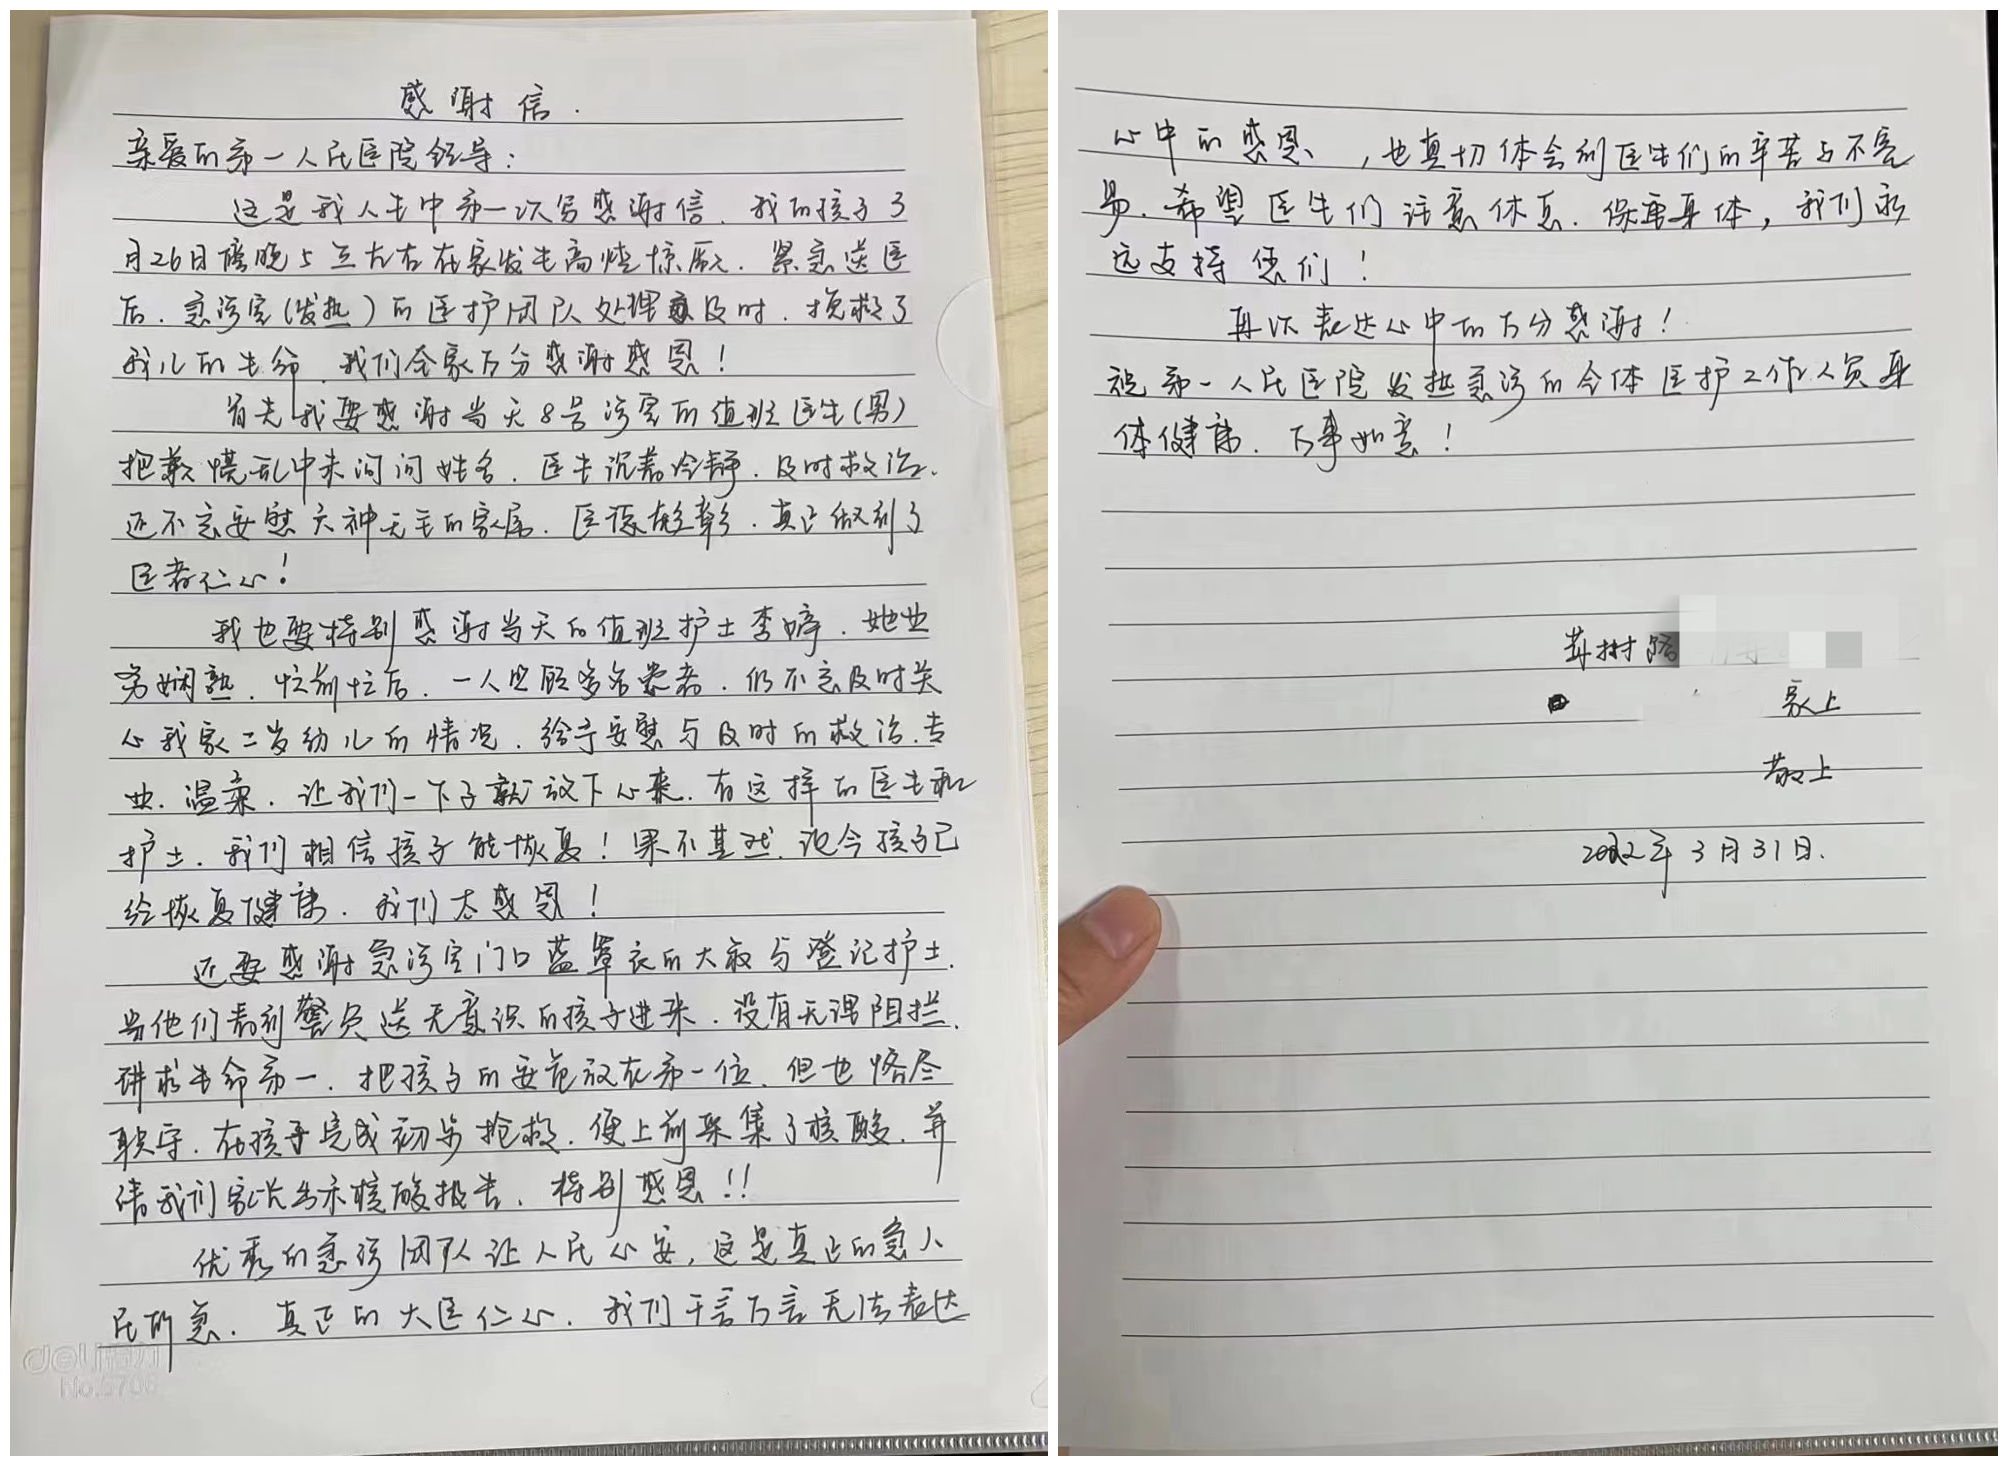 感谢信.
亲爱的第一人民医院领导：
这是我人生中第一次写感谢信.我的孩子3
月26日傍晚5点左右在家发生高烧惊厥.紧急送医
后.急诊室(发热)的医护团队处理及时.挽救了
我儿的生命.我们全家万分感谢感恩！
首先我要感谢当天8号诊室的值班医生(男)
抱歉慌乱中未问问姓名.医生沉着冷静.及时救治.
还不忘安慰六神无主的家属.医德彰.真正做到了
医者仁心！
我也要特别感谢当天的值班护士李婷.她业
务娴熟.忙前忙后.一人照顾多名患者.仍不忘及时关
心我家二岁幼儿的情况.给予安慰与及时的救治.专
业.温柔.让我们一下子就放下心来.有这样的医生和
护士.我们相信孩子能恢复！果不其然.现今孩子已
给恢复健康.我们太感恩！
还要感谢急诊室门口蓝罩衣的大叔与登记护士.
当他们看到警员送无意识的孩子进来.没有无谓阻拦.
讲求生命第一.把孩子的安危放在第一位.但也恪尽
职守.在孩子完成初步抢救.便上前采集了核酸.并
请我们家长出示核酸报告.特别感恩!!
优秀的急诊团队让人民心安,这是真正的急人
民所急.真正的大医仁心.我们千言万言无法表达
心中的感恩，也真切体会到医生们的辛苦与不容
易.希望医生们注意休息.保重身体，我们永
远支持您们！
再次表达心中的万分感谢！
祝第一人民医院发热急诊的全体医护工作人员身
体健康.万事如意！
树路
家上
敬上
2022年3月31日.
deli得力
No.5706